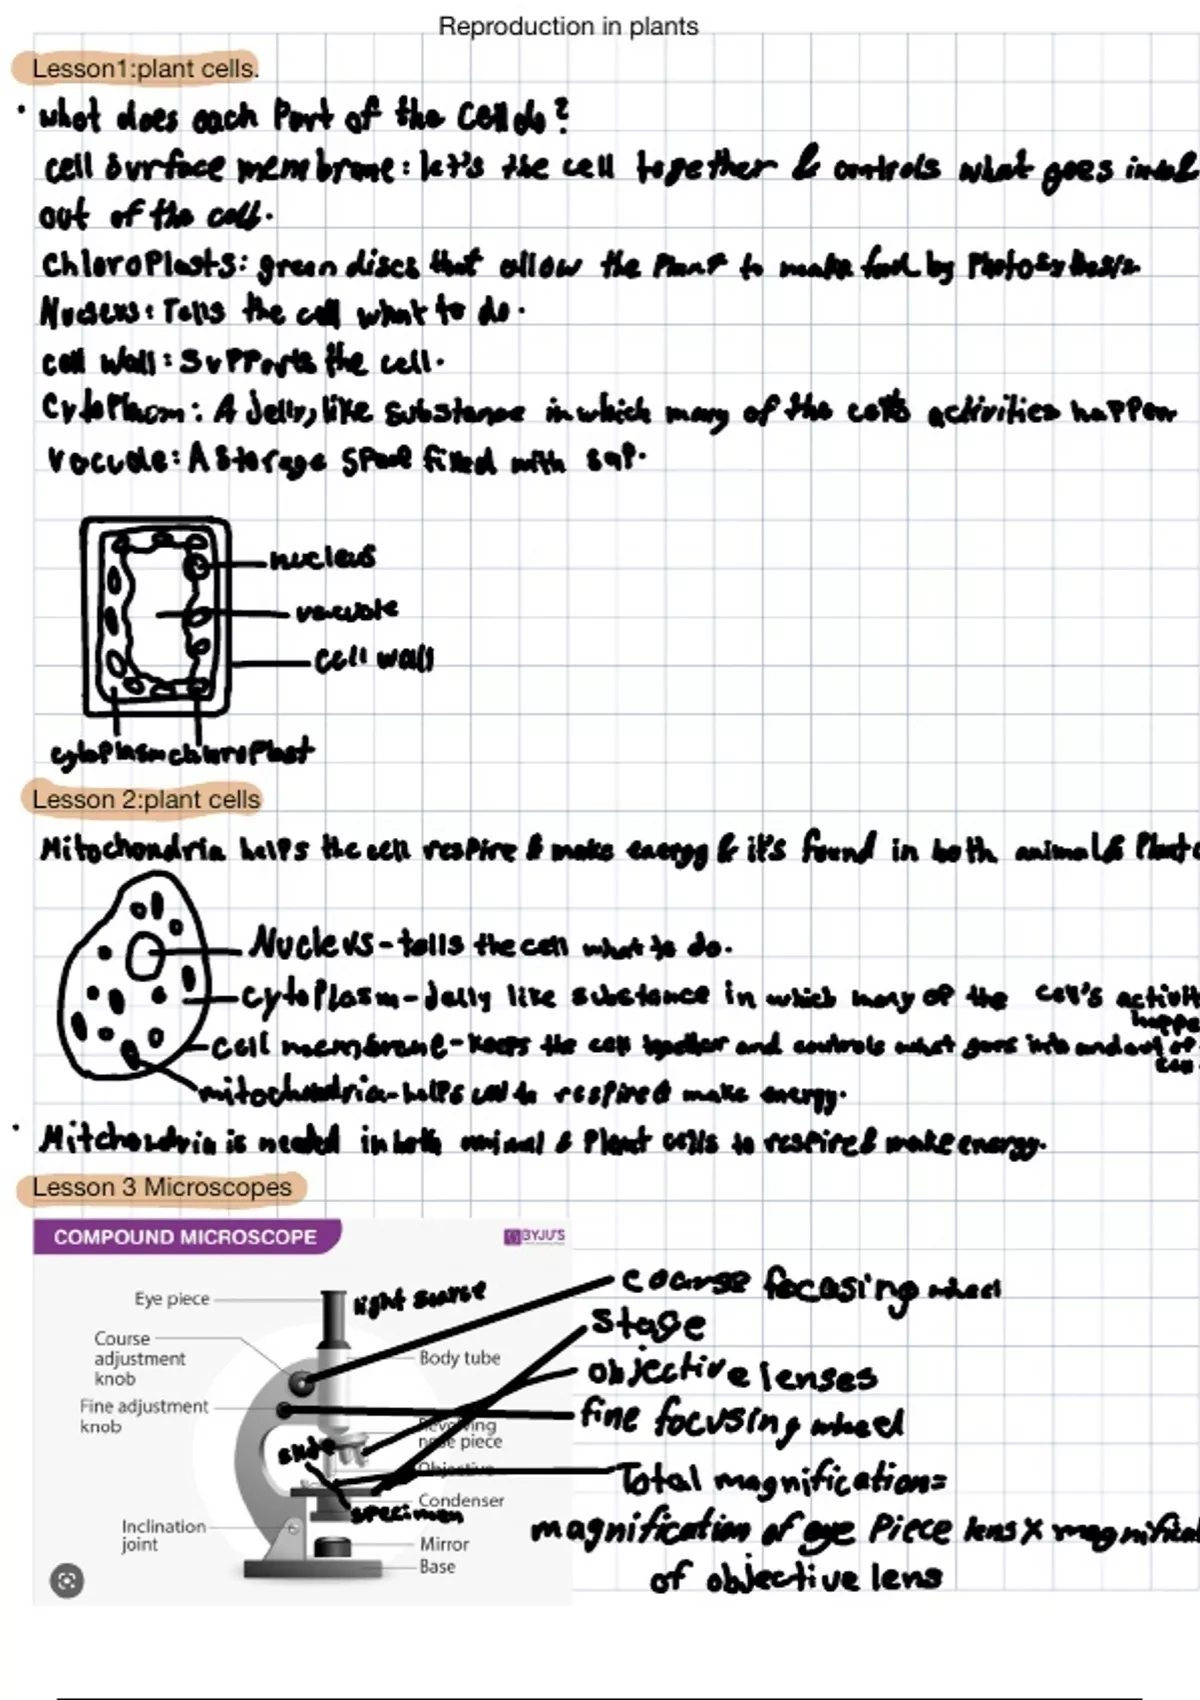 Reproduction in plants
Lesson1:plant cells.
• what does each Part of the Cell do?
cell surface membrane: let's the cell together & controls what goes in and
out of the cell.
ChloroPlasts: green discs that allow the Plant to make food by
: Tells the cell what to do.
cell wall: SuPPorts the cell.
CytoPlasm: A Jelly, like substance in which many of the cells activities happen
: A Storage Space filled with sap.
nucleus
cell wall
cytoPlasm chloroPlast
Lesson 2:plant cells
Mitochondria helps the cell respire & make energy & it's found in both animal &
Nucleus - tells the cell what to do.
cytoPlasm - Jelly like substance in which many of the cell's
cell membrane - keeps the cell together and controls what goes into and out of
mitochondria - helps cell to respire & make energy.
• is needed in both animal & Plant cells to respire & make energy.
Lesson 3 Microscopes
COMPOUND MICROSCOPE
BYJU'S
coarse focusing wheel
Eye piece
light source
stage
Course
adjustment
knob
Body tube
objective lenses
Fine adjustment
knob
fine focusing wheel
Revolving
nose piece
slide
Objective
Total magnification=
Condenser
specimen
magnification of eye Piece lens x
Inclination
joint
Mirror
Base
of objective lens